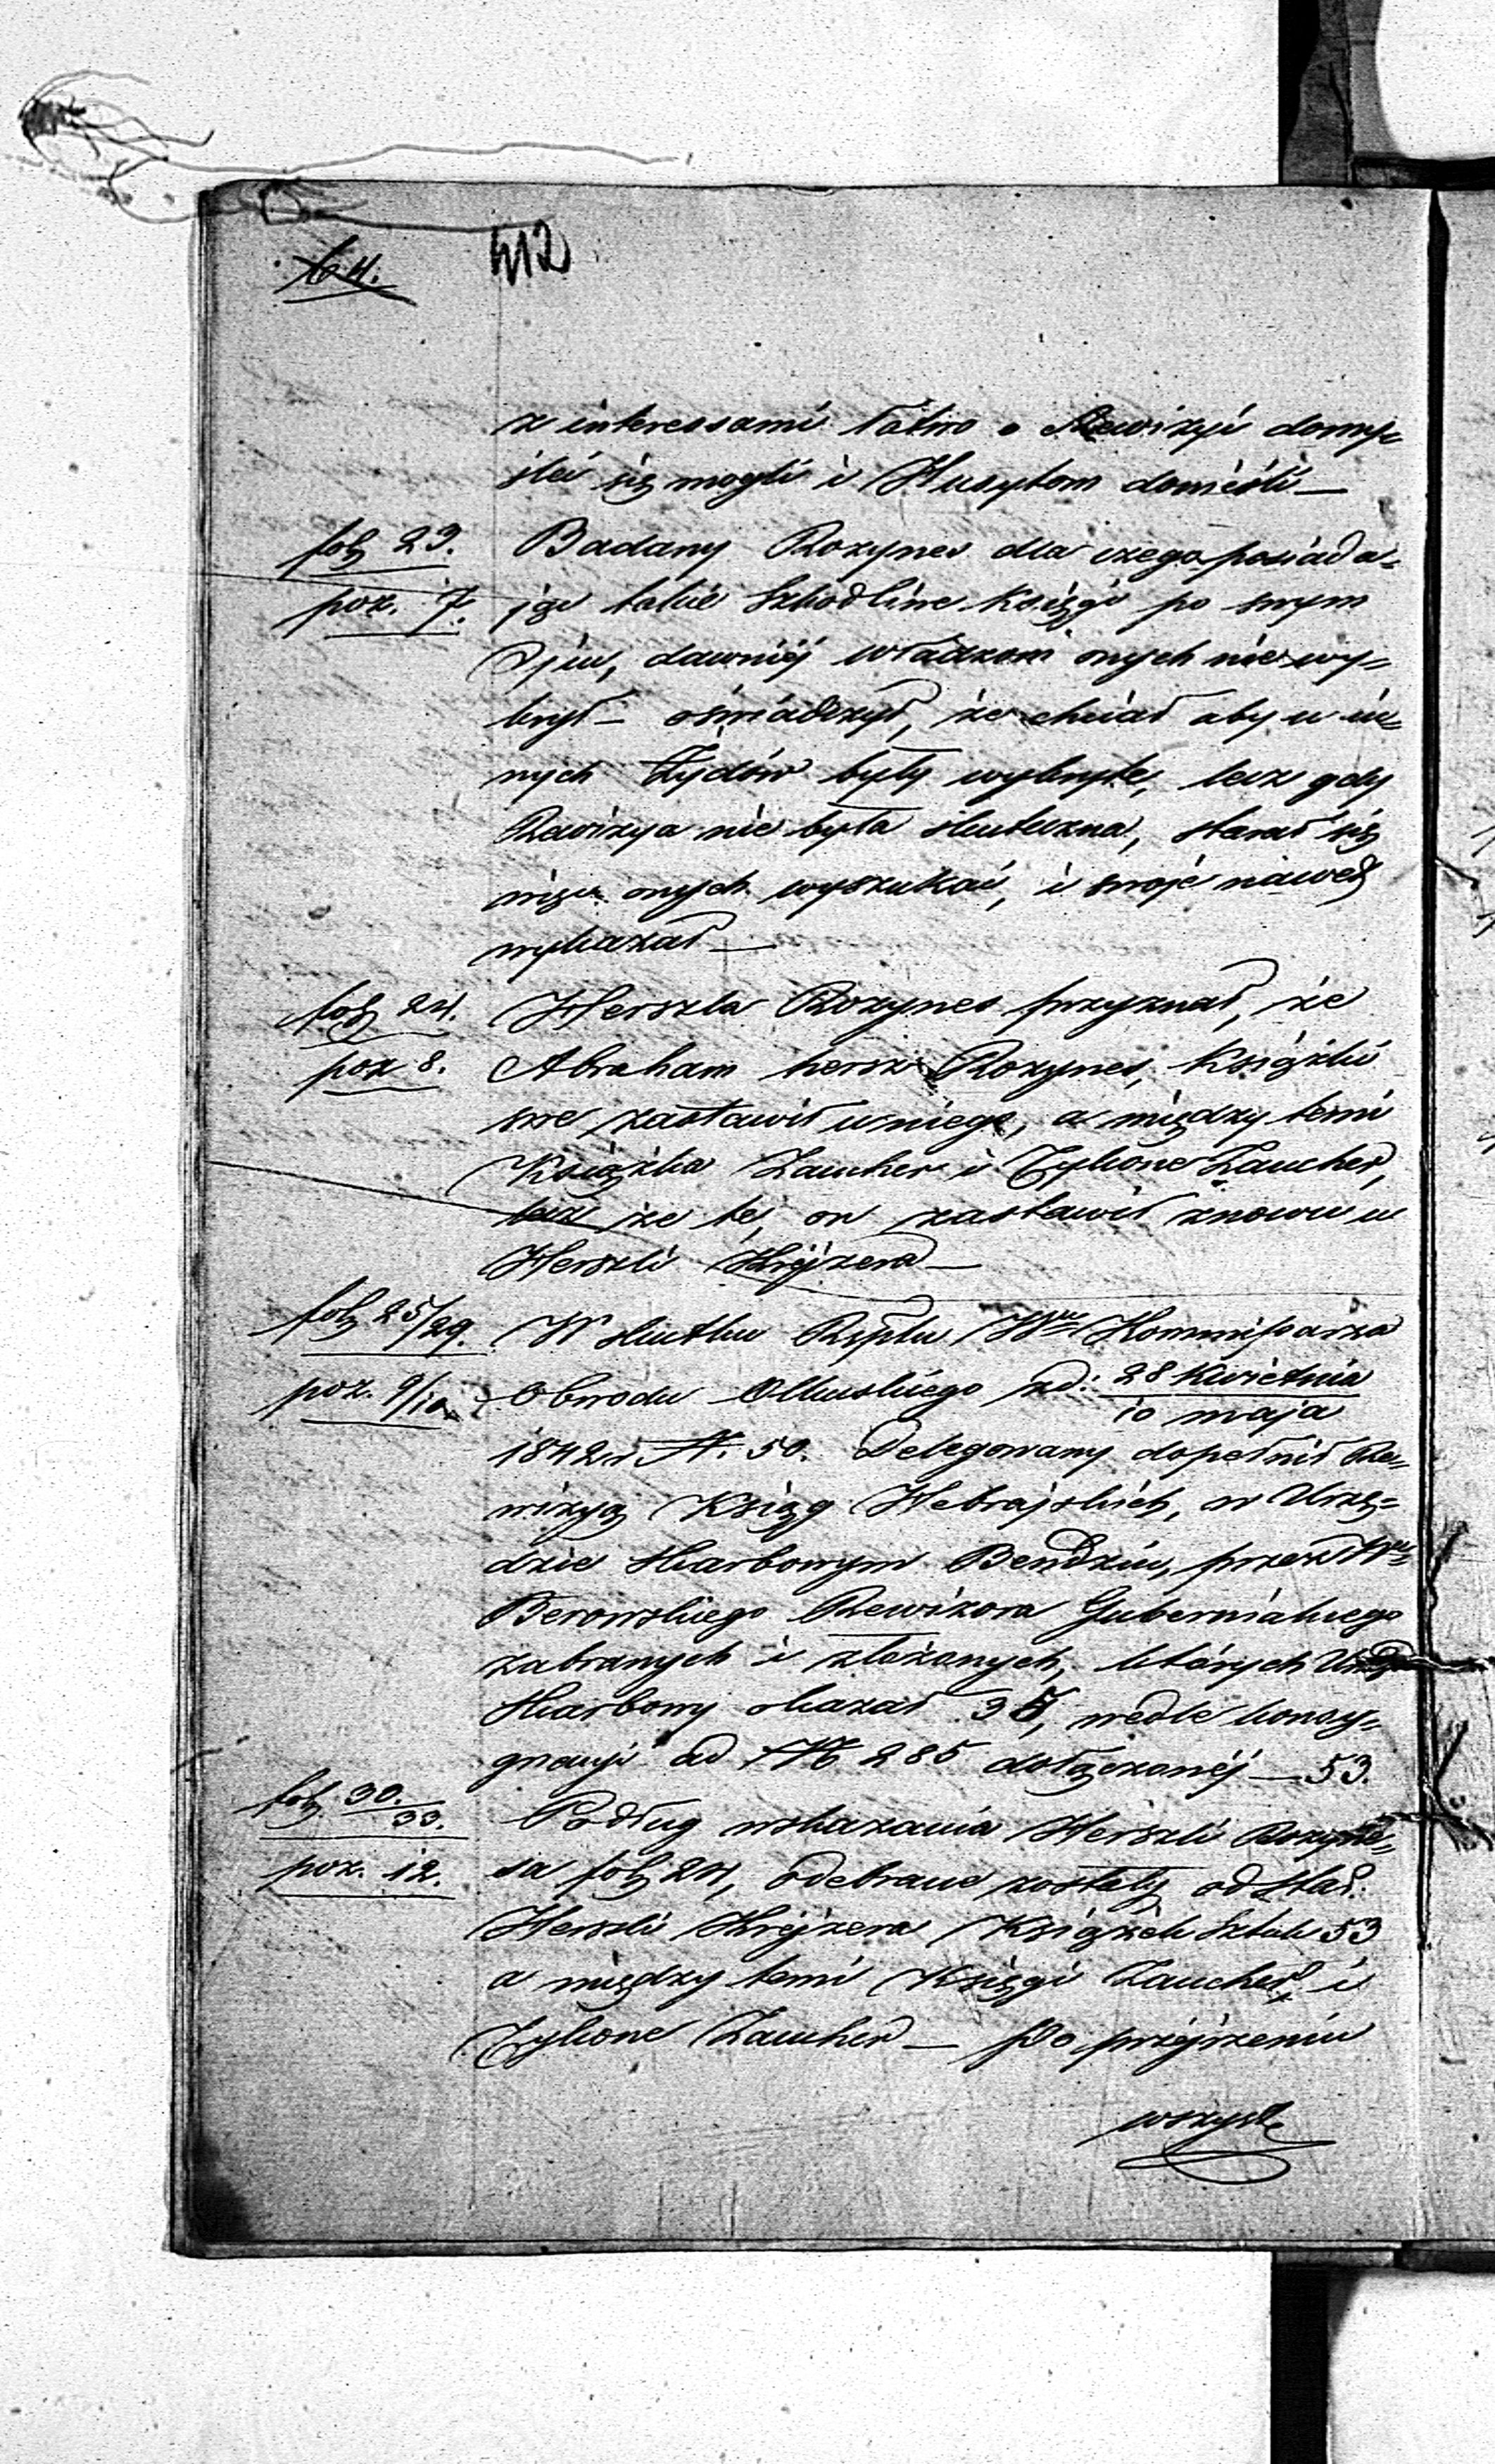 64.
412
z interessami łatwo o Rewizyi domy-
ślić się mogli i Husytom donieśli —
fol. 23. Badany Rozynes dla czego posiada-
poz. 7. jąc takie Szkodliwe Księgi po swym
Ojcu, dawniej władzom onych nie wy-
krył — oświadczył, że chciał aby u in-
nych Żydów były wykryte, lecz gdy
Rewizya nie była skuteczna, starał się
więc onych wyszukać, i swoje nawet
wykazał —
fol. 24. Herszla Rozynes przyznał, że
poz 8. Abraham hersz Rozynes, Książki
swe zastawił u niego, a między temi
Książka Zaucher i Tykone Zaucher,
lecz że te, on zastawił znowu u
Herszli Krejzera —
fol. 25/29. W skutku Rsptu JWgo Kommissarza
poz. 9/10 Obwodu Olkuskiego zd: 28 Kwietnia
10 maja
1842 r. N. 50. Delegowany dopełnił Re-
wizyą Ksiąg Hebrajskich, w Urzę-
dzie Skarbowym Bendzin, przez
Berowskiego Rewizora Gubernialnego
zabranych i złożonych, których
Skarbowy okazał 35, wedle konsy-
gnacyi ad No 285 dołączonej — 53.
fol. 30./33. Podług wskazania Herszli Rozyne-
poz. 12. sa fol. 24, odebrane zostały od Stał.
Herszli Krejzera Książek Sztuk 53
a między temi Księgi Zaucher i
Tykone Zaucher — Po przejrzeniu
wszyst